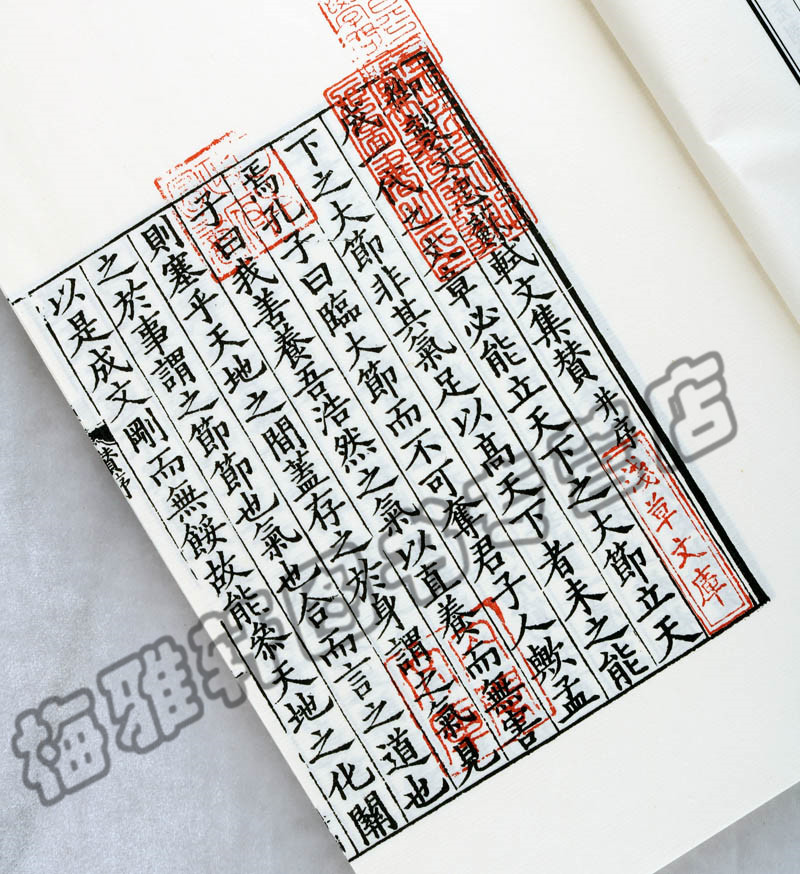 御製文忠蘇軾文集贊 并序
成一代之文章必能立天下之大節立天
下之大節非其氣足以高天下者未之能
焉孔子曰臨大節而不可奪君子人歟孟
子曰我善養吾浩然之氣以直養而無害
則塞乎天地之間蓋存之於身謂之氣見
之於事謂之節節也氣也合而言之道也
以是成文剛而無餒故能參天地之化關
贊序
淺草文庫
梅雅轩图书专营店